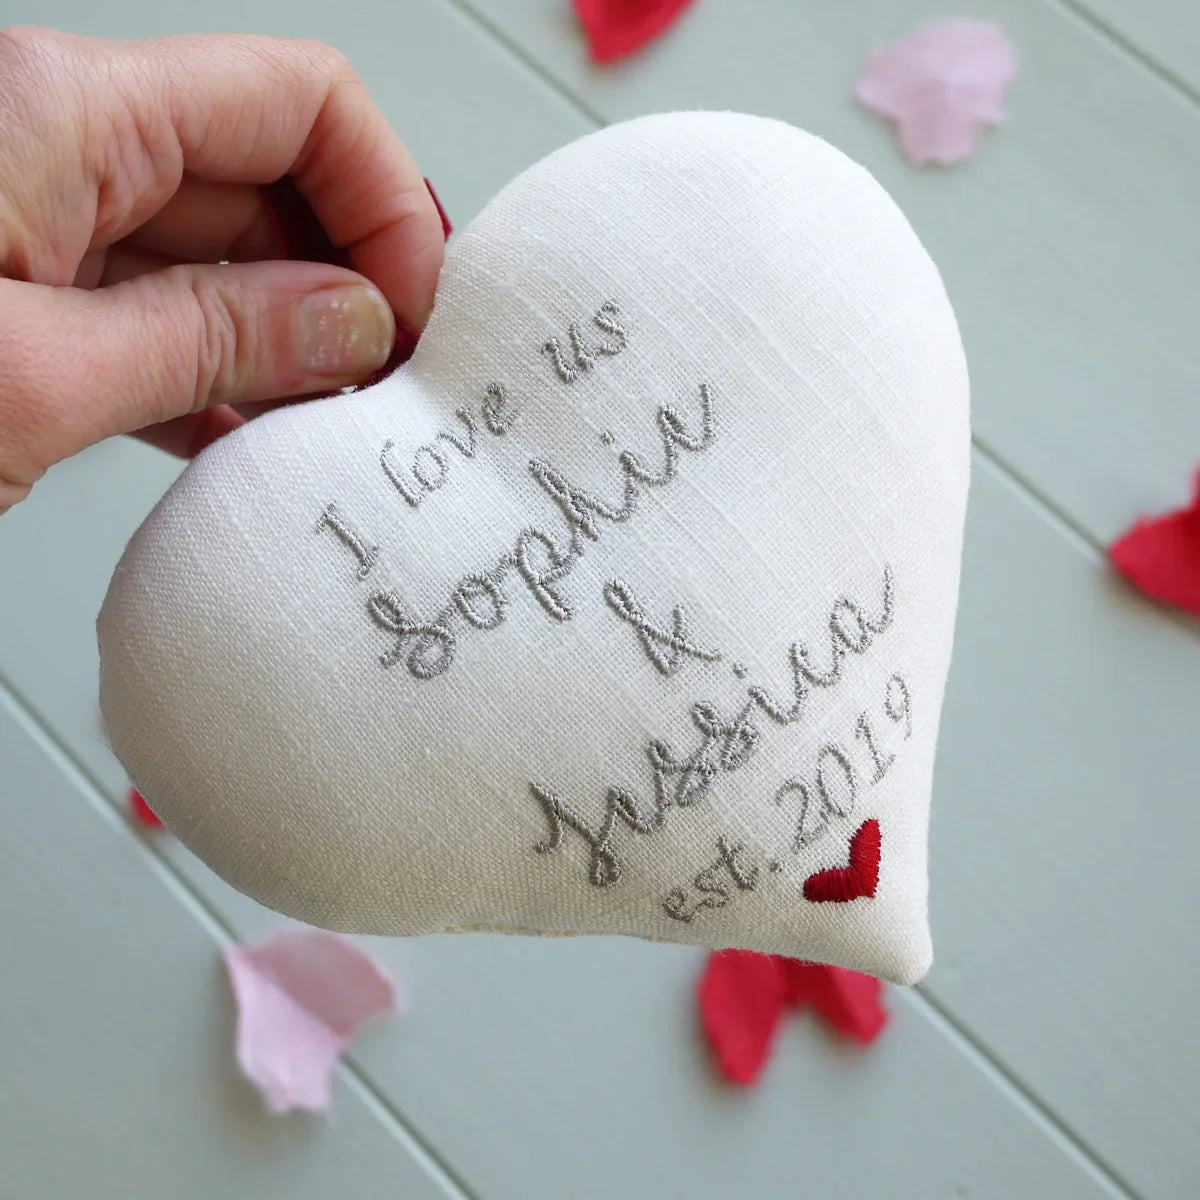 I love us
Sophia
&
Jessica
est. 2019